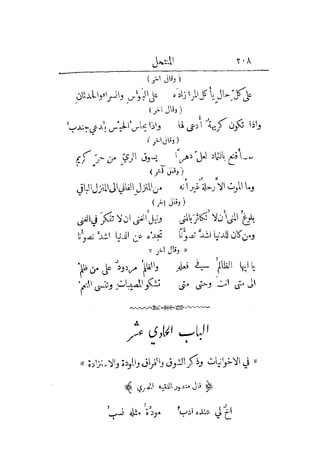 ٢٠٨ المنتحل
( وقال آخر )
على كل حال يأكل المرء زاده على البؤس والسراء والحدثان
( وقال آخر )
واذا تكون كريهة أدعى لها واذا يحاس الحيس يدعى جندب
( وقال آخر )
سأقنع بالثماد لعل دهراً يسوق الري من حر كريم
( وقال آخر )
وما الموت الا رحلة غير أنه من المنزل الفاني الى المنزل الباقي
( وقال آخر )
بلوغ المنى أن لا تكاثر بالمنى ونيل الغنى ان لا تفكر في الغنى
ومن كان للدنيا اشد تصوناً تجده عن الدنيا اشد تصونا
* وقال آخر *
يا ايها الظالم في فعله والظلم مردود على من ظلم
الى متى انت وحتى متى تشكو المصيبات وتنسى النعم
الباب الحادي عشر
* في الاخوانيات وذكر الشوق والفراق والمودة والاستزادة *
قال منصور الفقيه المصري
اخ لي عنده ادب مودة مثله نسب